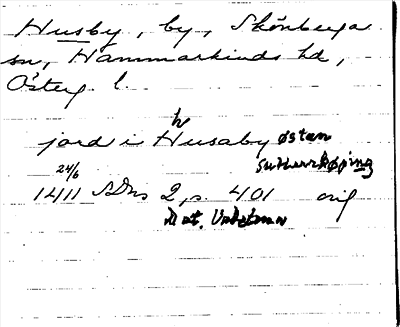 Husby, by, Skönberga
sn, Hammarkinds hd,
Österg. l.
h
jord i Husaby østan
Sutherkøping
24/6
1411 SDns 2, s. 401 orig
Dat. Vadstena